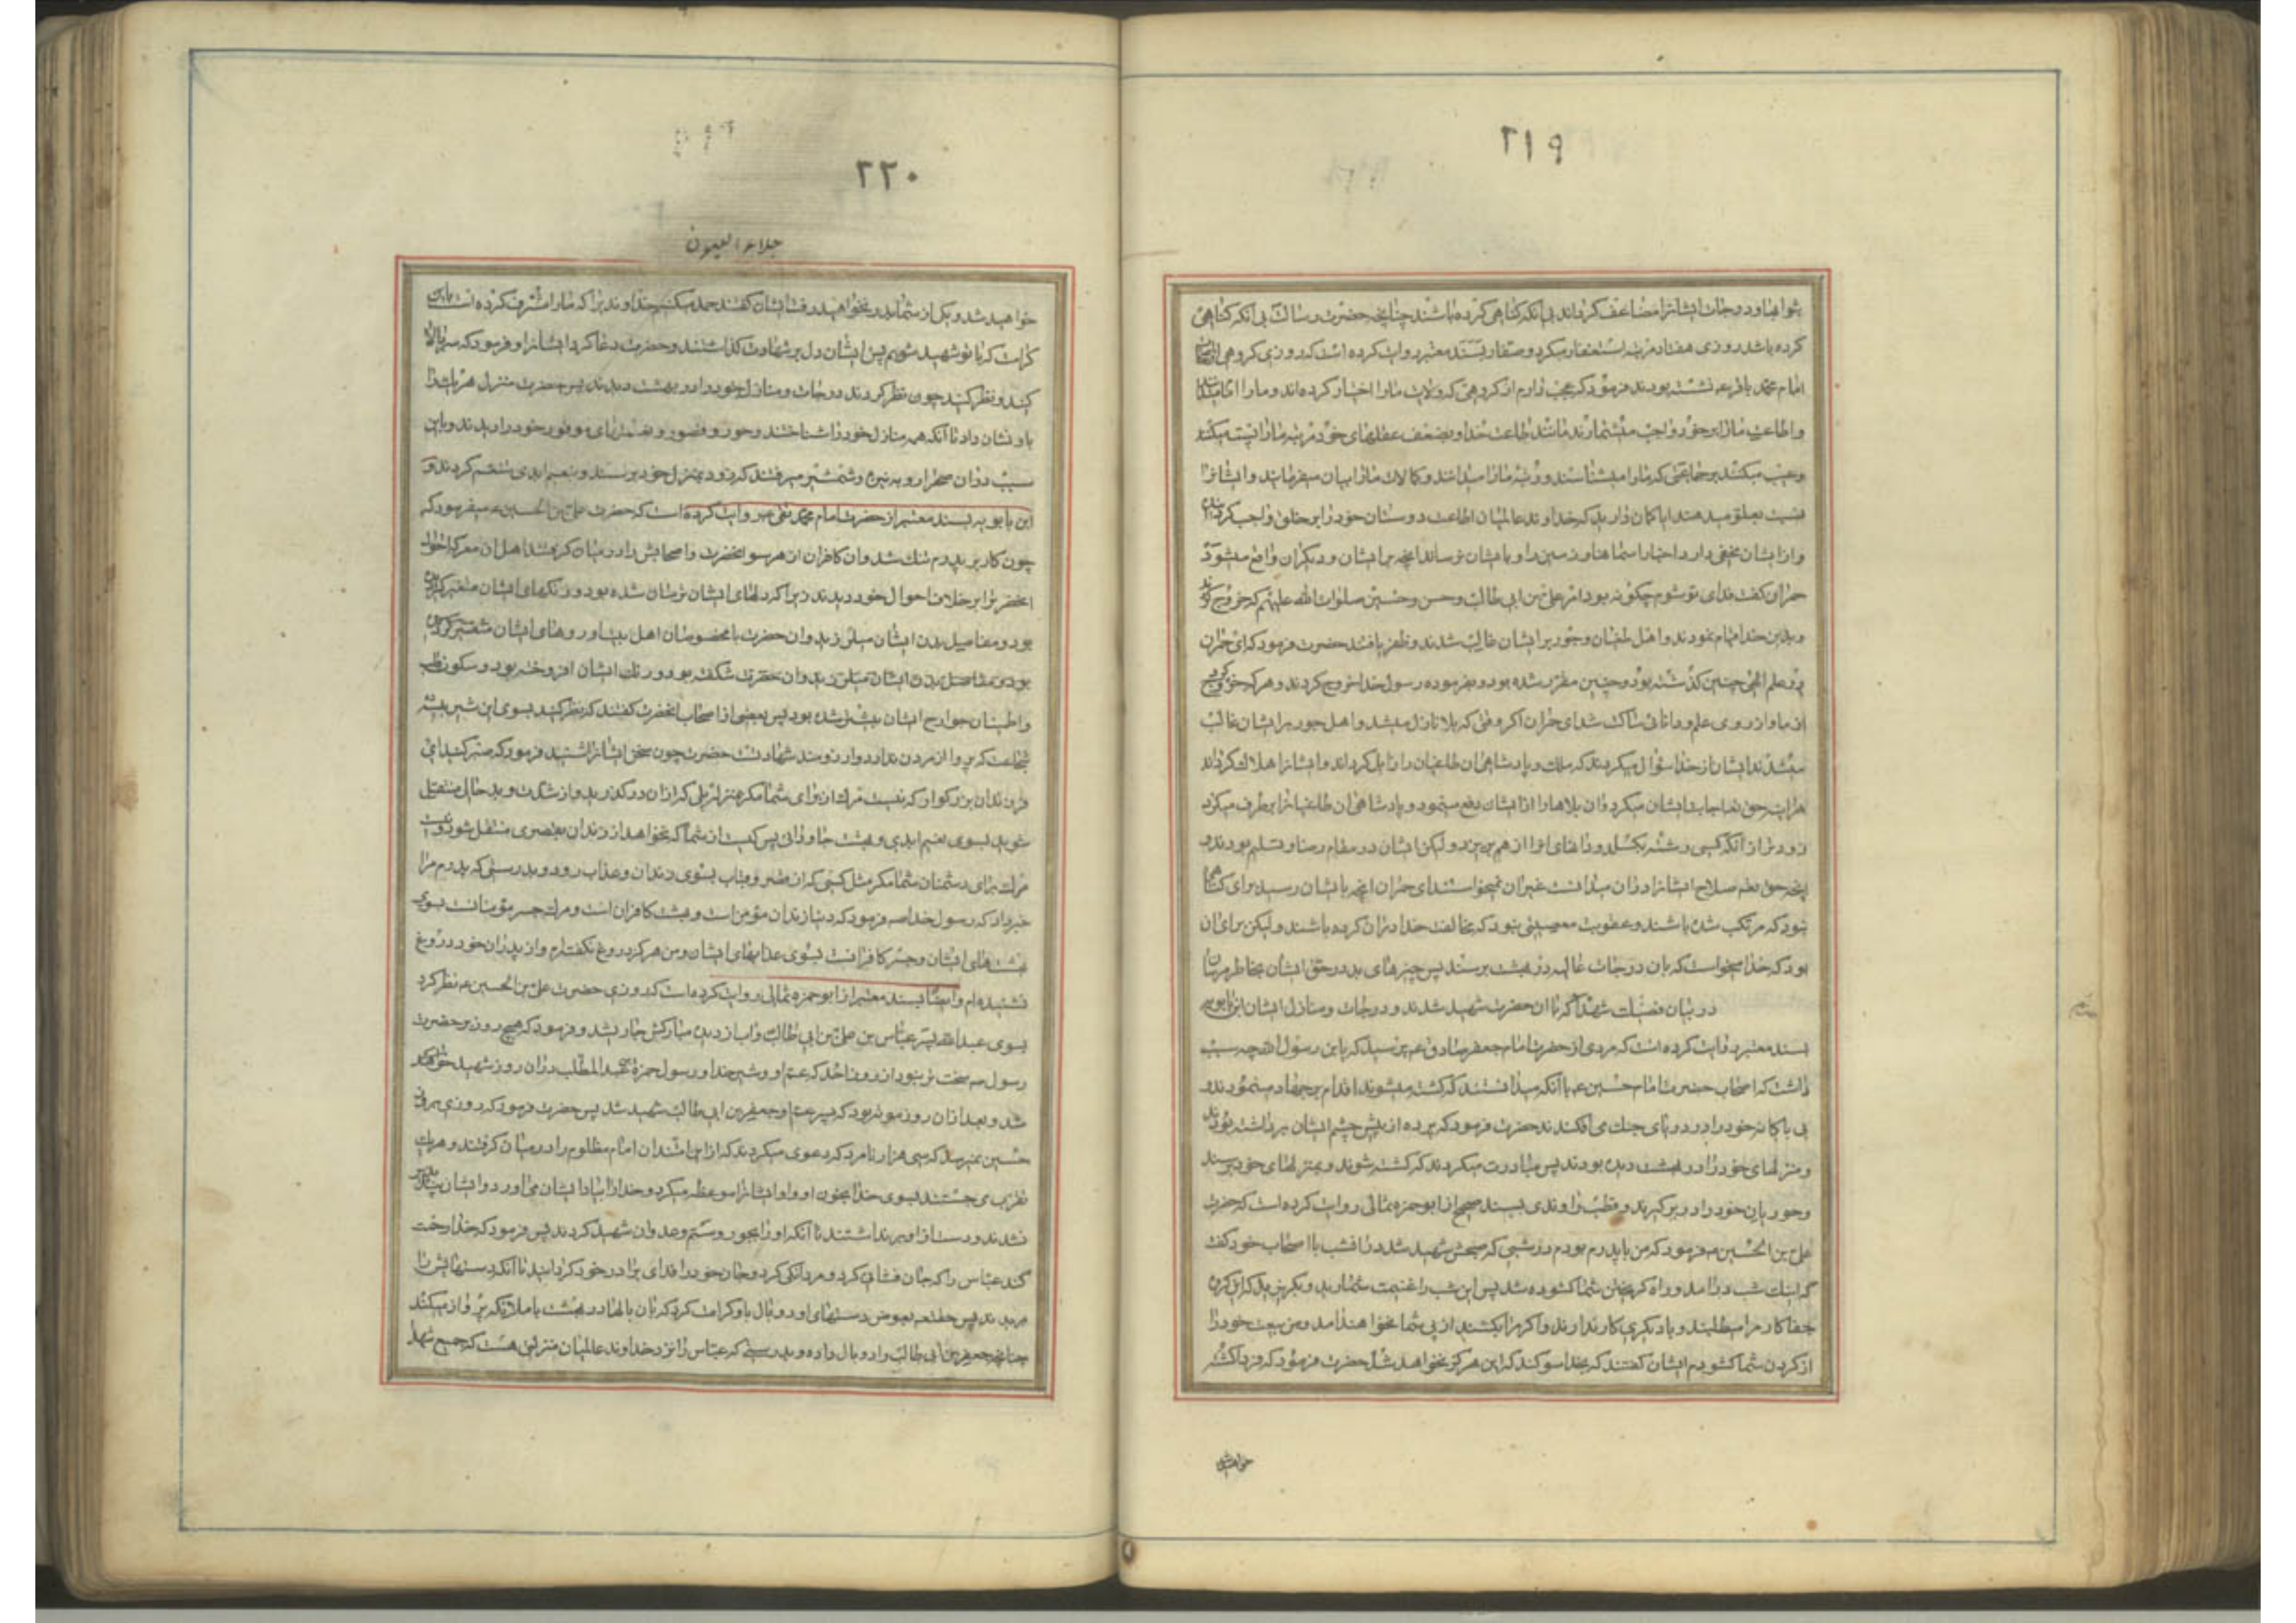 ۲۱۹
کرده باشد روزی هفتاد مرتبه استغفار میکرد و صفار بسند معتبر روایت کرده است که روزی کروهی
امام محمد باقر ع نشسته بودند فرمود که عجب دارم از کروهی که ولایت ما را اختیار کرده اند و ما را امام
و اطاعت ما را بر خود واجب میشمارند مانند طاعت خدا و بضعف عقلهای خود مرتبه ما را پست میکنند
و عیب میکنند بر جماعتی که ما را میشناسند و رتبه ما را میدانند و کمالات ما را بیان میفرمایند و ایشانرا
نسبت بغلو میدهند ایا کمان دارید که خداوند عالمیان اطاعت دوستان خود را بر خلق واجب کرد
و از ایشان مخفی دارد اخبار اسمانها و زمین را و بایشان نرساند انچه بر ایشان و دیکران واقع میشود
حمران کفت فدای تو شوم چکونه بود امر علی بن ابی طالب و حسن و حسین صلوات الله علیهم که خروج
و بدین خدا قیام نمودند و اهل طغیان و جور بر ایشان غالب شدند و ظفر یافتند حضرت فرمود که ای حمران
در علم الهی چنین کذشته بود و چنین مقرر شده بود و بفرموده رسول خدا خروج کردند و هر که خروج
از ما و از روی علم و دانائی ساکت شد ای حمران اکر وقتی که بلا نازل میشد و اهل جور بر ایشان غالب
میشدند ایشان از خدا سؤال میکردند که ملک و پادشاهی ان طاغیان را زایل کرداند و ایشانرا هلاک کرداند
هراینه حق تعالی اجابت ایشان میکرد و ان بلاها را از ایشان دفع مینمود و پادشاهی ان طاغیانرا بر طرف میکرد
زودتر از آنکه کسی رشته بکسلد و دانهای انرا از هم بریزد و لیکن ایشان در مقام رضا و تسلیم بودند و
انچه حق تعم صلاح ایشانرا در ان میدانست غیر ان نمیخواستند ای حمران انچه بایشان رسید برای کناهی
نبود که مرتکب شده باشند و عقوبت معصیتی نبود که مخالفت خدا در ان کرده باشند و لیکن برای ان
بود که خدا میخواست که بان درجات عالیه در بهشت برسند پس چیزهای بد در حق ایشان بخاطر مرسان
در بیان فضیلت شهدا که با ان حضرت شهید شدند و درجات و منازل ایشان ابن بابویه
بسند معتبر روایت کرده است که مردی از حضرت امام جعفر صادق ع پرسید که یابن رسول الله چه سبب
داشت که اصحاب حضرت امام حسین ع با آنکه میدانستند که کشته میشوند اقدام بر جهاد مینمودند و
بی باکانه خود را در دریای جنک می افکندند حضرت فرمود که پرده از پیش چشم ایشان برداشته بودند
و منزلهای خود را در بهشت دیده بودند پس مبادرت میکردند که کشته شوند و بمنزلهای خود برسند
و حوریان خود را در بر کیرند و قطب راوندی بسند صحیح از ابو حمزه ثمالی روایت کرده است که حضرت
علی بن الحسین ع فرمود که من با پدرم بودم در شبی که صبحش شهید شد در انشب با اصحاب خود کفت
که اینک شب در آمد و راه کریختن شما کشوده شد پس این شب را غنیمت شمارید و بکریزید که این کروه
جفاکار مرا میطلبند و با دیکری کار ندارند و اکر مرا بکشند از پی شما نخواهند امد و من بیعت خود را
از کردن شما کشودم ایشان کفتند که بخدا سوکند که این هرکز نخواهد شد حضرت فرمود که فردا کشته
خواهید شد
۲۲۰
جلاء العیون
خواهید شد و یکی از شما بدر نخواهید رفت ایشان کفتند حمد میکنیم خداوندیرا که ما را مشرف کرده است باین
کرامت که با تو شهید شویم پس ایشان دل بر شهادت کذاشتند و حضرت دعا کرد ایشانرا و فرمود که سر بالا
کنید و نظر کنید چون نظر کردند درجات و منازل خود را در بهشت دیدند پس حضرت منزل هر یک را
باو نشان داد تا آنکه همه منازل خود را شناختند و حور و قصور و نعمتهای موفور خود را دیدند و باین
سبب در ان صحرا رو به نیزه و شمشیر میرفتند که زود بمنزل خود برسند و بنعیم ابدی متنعم کردند و
ابن بابویه بسند معتبر از حضرت امام محمد تقی ع روایت کرده است که حضرت علی بن الحسین ع میفرمود که
چون کار بر پدرم تنک شد و ان کافران از هر سو انحضرت و اصحابش را در میان کرفتند اهل ان معرکه احوال
انحضرترا بر خلاف احوال خود دیدند زیرا که دلهای ایشان ترسان شده بود و رنکهای ایشان متغیر کردیده
بود و مفاصل بدن ایشان میلرزید و ان حضرت با مخصوصان اهل بیت او روهای ایشان
بود و مفاصل بدن ایشان میلرزید و ان حضرت شکفته بود و رنک ایشان افروخته بود و سکون قلب
و اطمینان جوارح ایشان بیشتر شده بود پس بعضی از اصحاب انحضرت کفتند که نظر کنید بسوی این شیر بیشه
شجاعت که پروا از مردن ندارد و ارزومند شهادتست حضرت چون سخن ایشانرا شنید فرمود که صبر کنید ای
فرزندان بزرکوار که نیست مرک از برای شما مکر بمنزله پلی که از ان در کذرید و از شدت و بد حالی منتقل
شوید بسوی نعیم ابدی و بهشت جاودانی پس کیست از شما که نخواهد از زندان بقصری منتقل شود و نیست
مرک برای دشمنان شما مکر مثل کسی که از قصر و بهشت بسوی زندان و عذاب رود و بدرستی که پدرم مرا
خبر داد که رسول خدا ص فرمود که دنیا زندان مؤمن است و بهشت کافران است و مرک جسر مؤمنانست بسوی
بهشتهای ایشان و جسر کافرانست بسوی عذابهای ایشان و من هرکز دروغ نکفته ام و از پدران خود دروغ
نشنیده ام و ایضا بسند معتبر از ابو حمزه ثمالی روایت کرده است که روزی حضرت علی بن الحسین ع نظر کرد
بسوی عبدالله پسر عباس بن علی بن ابی طالب و اب از دیده مبارکش جاری شد و فرمود که هیچ روز بر حضرت
رسول ص سخت تر نبود از روز احد که عم او و شیر خدا و رسول حمزة بن عبدالمطلب در ان روز شهید
شد و بعد از ان روز موته بود که پسر عم او جعفر بن ابی طالب شهید شد پس حضرت فرمود که روزی
حسین نمیرسد که سی هزار نامرد که دعوی میکردند که از این امتند ان امام مظلوم را در میان کرفتند و هر یک
تقرب می جستند بسوی خدا بخون او و او ایشانرا موعظه میکرد و خدا را بیاد ایشان می اورد و ایشان
نشدند و دست از او برنداشتند تا آنکه او را بجور و ستم و عدوان شهید کردند پس فرمود که خدا رحمت
کند عباس را که جان فشانی کرد و مردانکی کرد و جان خود را فدای برادر خود کردانید تا آنکه دستهایش را
بریدند پس حقتعم بعوض دستهای او دو بال باو کرامت کرد که بان بالها در بهشت با ملائکه پرواز میکند
چنانچه جعفر بن ابی طالب را دو بال داده و بدرستی که عباس را نزد خداوند عالمیان منزلتی هست که جمیع شهدا